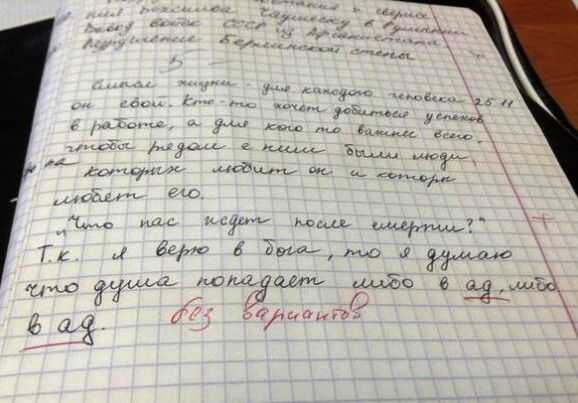 Чаушеску в Румынии
Вывод войск СССР из Афганистана
Разрушение Берлинской стены
5
Смысл жизни - для каждого человека 25.11
он свой. Кто-то хочет добиться успехов
в работе, а для кого то важнее всего,
чтобы рядом с ним были люди,
на которых любит он и которы
любят его.
"Что нас ждет после смерти?"
Т.к. я верю в бога, то я думаю
что душа попадает либо в ад, либо
в ад. без вариантов